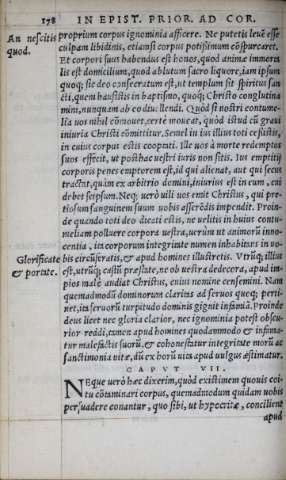 178 IN EPIST. PRIOR. AD COR.
An nescitis
quod.
proprium corpus ignominia afficere. Ne putetis leue esse
culpam libidinis, etiamsi corpus potissimum cōspurcaret.
Et corpori suus habendus est honos, quod animæ immorta
lis est domicilium, quod ablutum sacro liquore, iam ipsum
quoq; sic deo consecratum est, ut templum sit spiritus san
cti, quem hausistis in baptismo, quoq; Christo conglutina
mini, nunquam ab eo diuellendi. Quòd si nostri contume-
lia uos nihil cōmouet, certè moueat, quòd istud cū graui
iniuria Christi cōmittitur. Semel in ius illius toti cessistis,
in cuius corpus estis cooptati. Ille uos à morte redemptos
suos effecit, ut posthac uestri iuris non sitis. Ius emptitij
corporis penes emptorem est, id qui alienat, aut qui secus
tractat, quàm ex arbitrio domini, iniurius est in eum, cui
debet seipsum. Neq; uerò uili uos emit Christus, qui pre-
tiosum sanguinem suum uobis asserēdis impendit. Proin-
de quando toti deo dicati estis, ne uelitis in huius contu-
meliam polluere corpora uestra, uerùm ut animorū inno-
centia, ita corporum integritate numen inhabitans in uo-
Glorificate
& portate.
bis circūferatis, & apud homines illustretis. Vtrūq; illius
est, utrūq; castū præstate, ne ob uestra dedecora, apud im-
pios malè audiat Christus, cuius nomine censemini. Nam
quemadmodū dominorum claritas ad seruos quoq; perti-
net, ita seruorū turpitudo dominis gignit infamiā. Proinde
deus licet nec gloria clarior, nec ignominia potest obscu-
rior reddi, tamen apud homines quodammodo & infama-
tur malefactis suorū, & cohonestatur integritate morū ac
sanctimonia uitæ, dū ex horū uita apud uulgus æstimatur.
CAPVT VII.
NEque uerò hæc dixerim, quòd existimem quouis coi-
tu cōtaminari corpus, quemadmodum quidam uobis
persuadere conantur, quo sibi, ut hypocritæ, concilient
apud